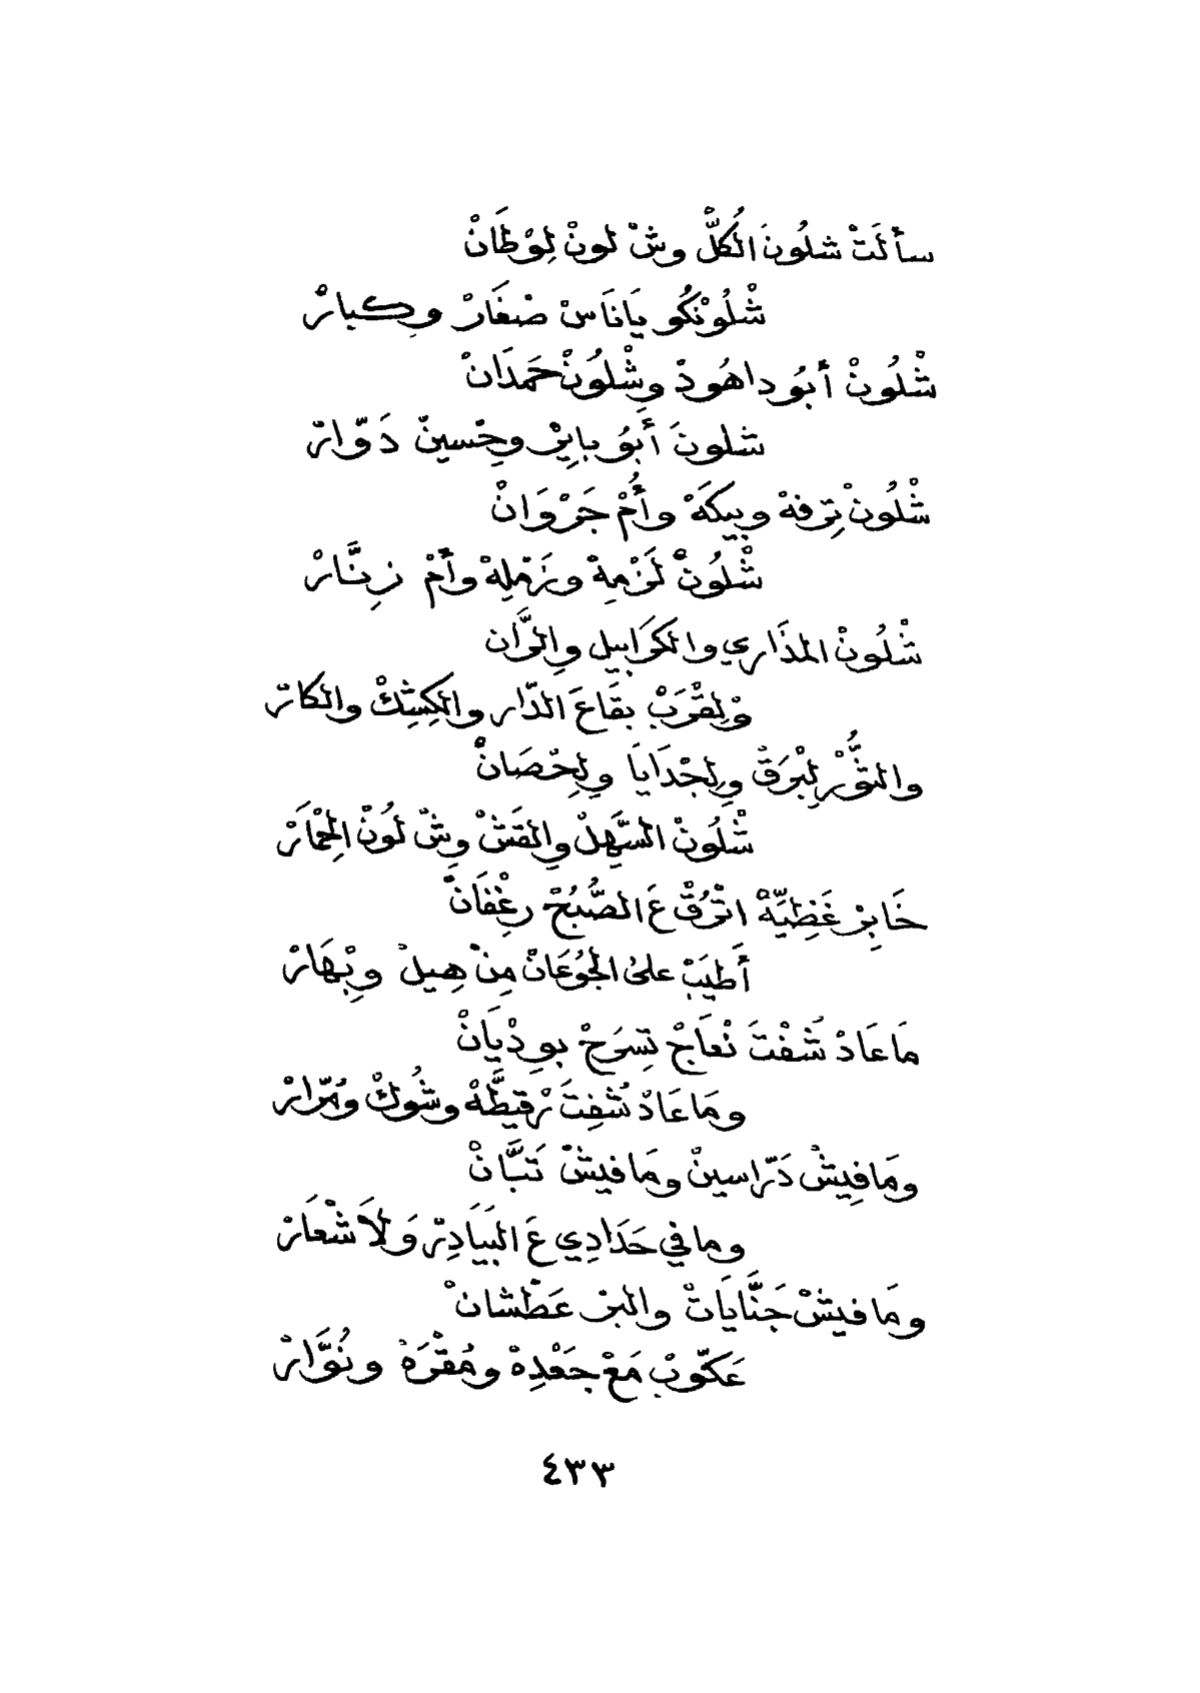 سألَتْ شلُونَ الْكُلّْ وشْ لونْ لِوْطَانْ
شْلُوْنْكُو يَانَاسْ صْغَارْ وكِبارْ
شْلُونْ أبُو داهُودْ وشْلُونْ حَمدَانْ
شلونَ أَبُو بايِرْ وحْسينْ دَوّارْ
شْلُونْ تِرِفهْ وبيكَهْ وأُمْ جَرْوَانْ
شْلُونْ لَزْمِهْ وزَمْلِهْ وأمْ زِنَّارْ
شْلُونْ المذَاري والكَرَابيل والرَّان
ولِقْرَبْ بقَاعَ الدّار والكِشِكْ والكارْ
والثَّوْرْ لِبْرَقْ ولِجْدَايَا ولِحْصَانْ
شْلُونْ السَّهِلْ والقَشْ وشْ لَوْنْ الِحْمَارْ
خَابِزْ غَظِيَّهْ اتْرُقْ عَ الصُّبُحْ رغْفَانْ
أَطيَبْ علىُ الجُوُعَانْ مِنْ هِيلْ وبْهَارْ
مَا عَادْ شُفْتَ نْعَاجْ تِسرَحْ بوِدْيَانْ
ومَا عَادْ شُفِتَ رْقيطَّهْ وشُوكْ ومُرّارْ
ومَافِيشْ دَرّاسينْ ومَافيشْ تَبَّانْ
ومافي حَدَادِي عَ البَيَادِرْ وَلاَ شْعَارْ
ومَافيشْ جَنَّايَاتْ والبرْ عَطْشانْ
عَكّوبْ مَعْ جَعْدِهْ ومُقْرَهْ ونُوَّارْ
٤٣٣